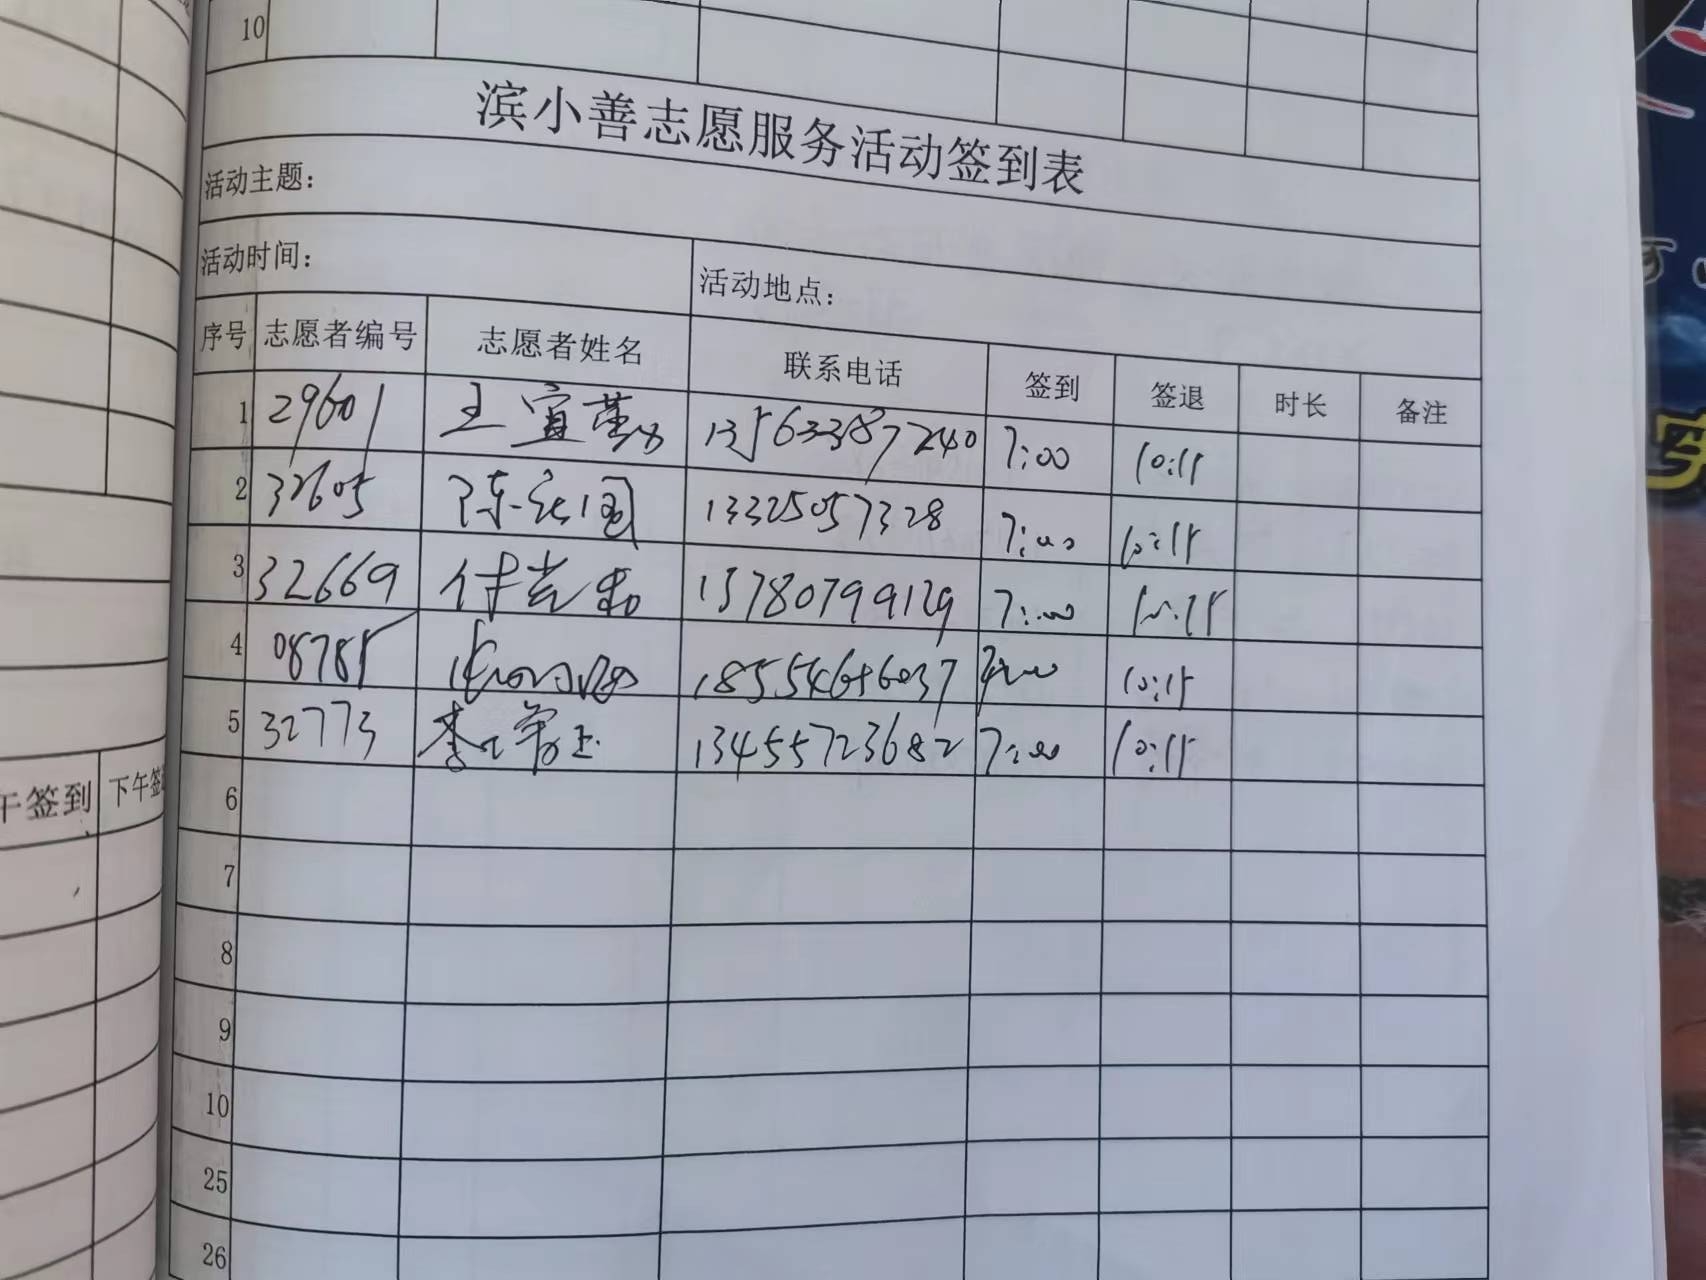 10
滨小善志愿服务活动签到表
活动主题：
活动时间： 活动地点：
序号 志愿者编号 志愿者姓名 联系电话 签到 签退 时长 备注
1 29601 王宜 13563387240 7:00 10:15
2 32605 陈 国 13325057328 7:00 10:15
3 32669 付 13780799129 7:00 10:15
4 08785 10:15
5 32773 李 13455723682 7:00 10:15
6
7
8
9
10
25
26
午签到 下午签